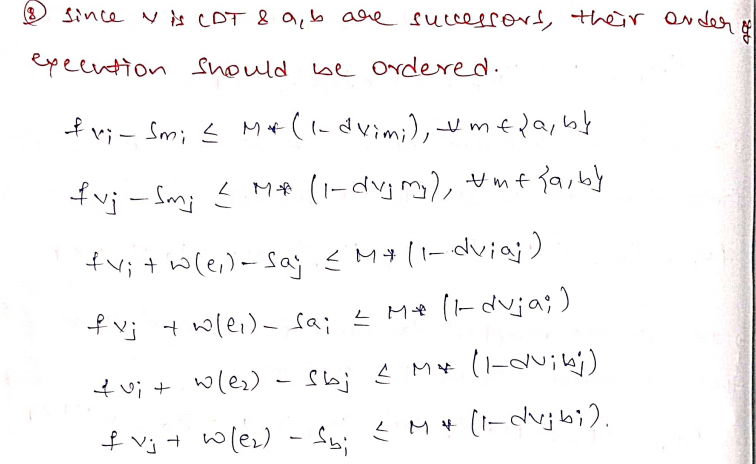 ⑧ Since v is CDT & a,b are successors, their order of
execution should be ordered.
fvi - Smi ≤ M*(1-dvimi), ∀m∈{a,b}
fvj - Smj ≤ M*(1-dvjmj), ∀m∈{a,b}
fvi + w(e1) - Saj ≤ M*(1-dviaj)
fvj + w(e1) - Sai ≤ M*(1-dvjai)
fvi + w(e2) - Sbj ≤ M*(1-dvibj)
fvj + w(e2) - Sbi ≤ M*(1-dvjbi).